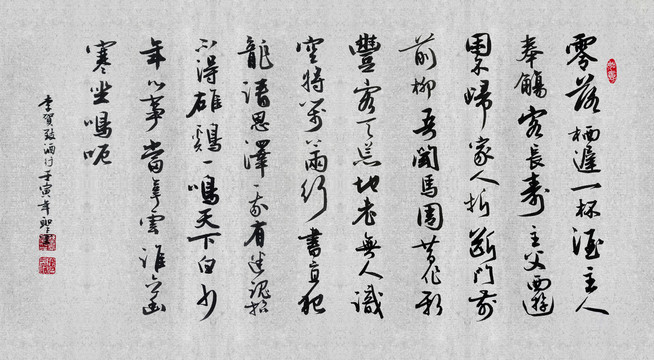 零落栖遲一杯酒主人
奉觴客長壽主父西遊
困不歸家人折斷門前
前柳吾聞馬周昔作新
豐客天荒地老無人識
空將箋上兩行書直犯
龍請恩澤我有迷魂招
不得雄雞一鳴天下白少
年心事當拏雲誰念幽
寒坐嗚呃
李賀致酒行壬寅年